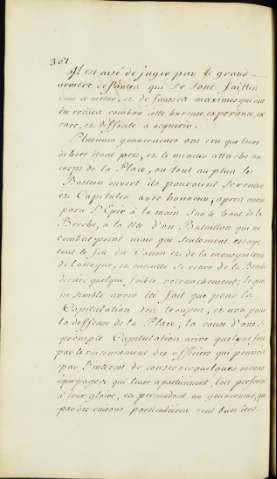 302
Il est aisé de juger par le grand
nombre de fautes qui se sont faittes
dans ce metier, et de fausses maximes qui ont
été suivies combien cette bonne experience, est
rare, et difficile a acquerir.
Plusieurs gouverneurs ont cru que leurs
dehors étant pris, et le mineur attaché au
corps de la Place, ou tout au plus le
Bastion ouvert ils pouvoient se rendre
et Capituler avec honneur, après avoir
paru l'Epée à la main sur le haut de la
Breche, à la tête d'un Bataillon qui ne
combat point mais qui seulement essuye
tout le feu du Canon et de la mousqueterie
de l'attaque, et ensuitte se retire de la Breche
derriere quelque foible retranchement, ce qui
ne semble avoir été fait que pour la
Capitulation des troupes, et non pour
la deffense de la Place; la cause d'une si
prompte Capitulation arrive quelque fois
par le des officiers qui poussés
par l'interest de conserver quelques menus
equipages qui leurs apartiennent, les preferent
à leur gloire, et persuadent au gouverneur, qui
par des raisons particulieres veut bien être